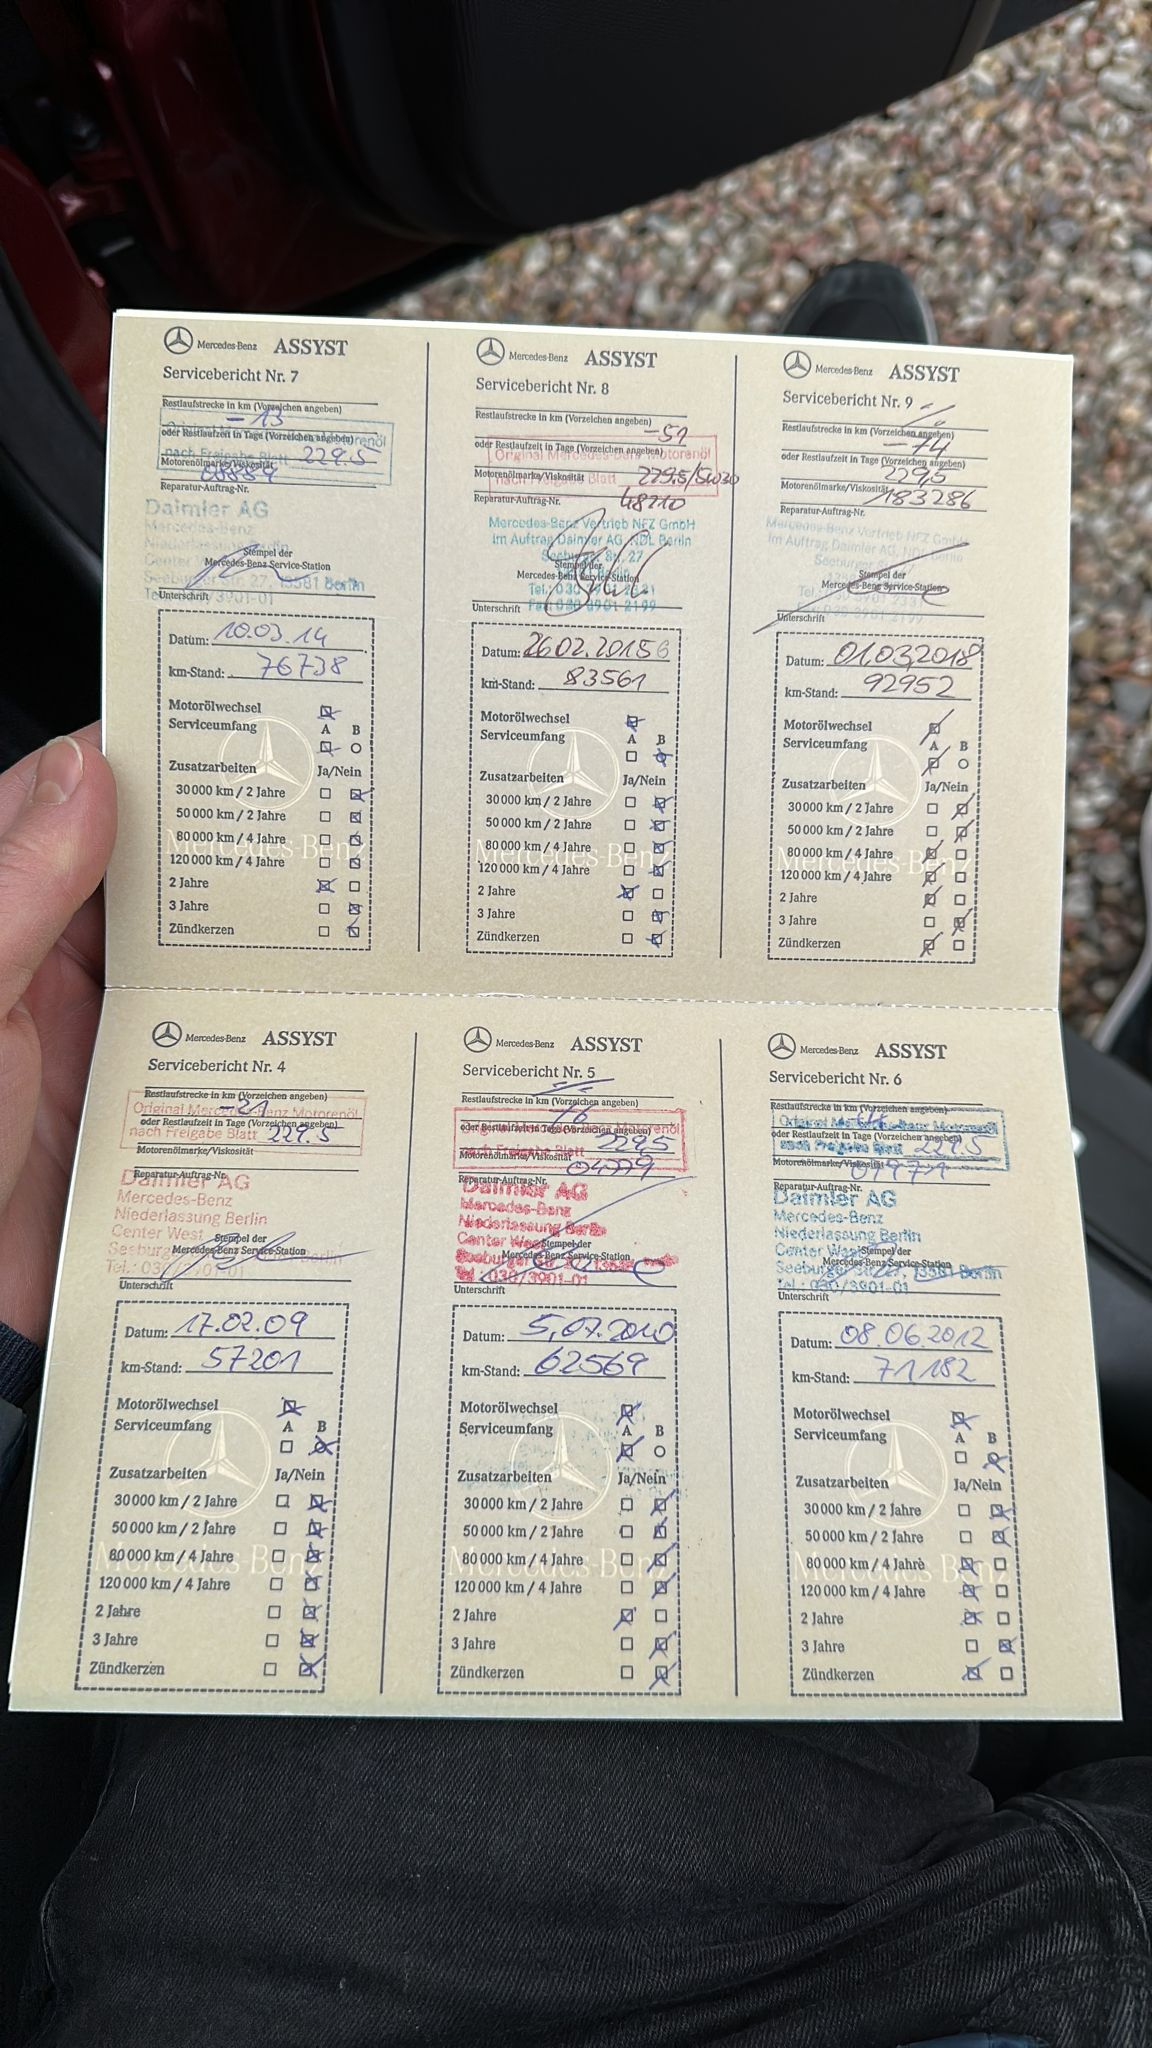 Mercedes-Benz ASSYST
Servicebericht Nr. 7
Restlaufstrecke in km (Vorzeichen angeben)
-13
oder Restlaufzeit in Tage (Vorzeichen angeben)
nach Freigabe Blatt 229.5
Motorenölmarke/Viskosität
Reparatur-Auftrag-Nr.
Daimler AG
Mercedes-Benz
Niederlassung Berlin
Stempel der
Mercedes-Benz Service-Station
Seeburger Str. 27, 13581 Berlin
Unterschrift
Datum: 10.03.14
km-Stand: 76738
Motorölwechsel
Serviceumfang A B
Zusatzarbeiten Ja/Nein
30 000 km / 2 Jahre
50 000 km / 2 Jahre
80 000 km / 4 Jahre
120 000 km / 4 Jahre
2 Jahre
3 Jahre
Zündkerzen
Mercedes-Benz ASSYST
Servicebericht Nr. 8
Restlaufstrecke in km (Vorzeichen angeben)
-51
oder Restlaufzeit in Tage (Vorzeichen angeben)
Original Mercedes-Benz Motorenöl
Motorenölmarke/Viskosität 229.5/5W30
Reparatur-Auftrag-Nr. 48210
Mercedes-Benz Vertrieb NFZ GmbH
im Auftrag Daimler AG, NDL Berlin
Seeburger Str. 27
Stempel der
Mercedes-Benz Service-Station
Unterschrift
Datum: 26.02.2016
km-Stand: 83561
Motorölwechsel
Serviceumfang A B
Zusatzarbeiten Ja/Nein
30 000 km / 2 Jahre
50 000 km / 2 Jahre
80 000 km / 4 Jahre
120 000 km / 4 Jahre
2 Jahre
3 Jahre
Zündkerzen
Mercedes-Benz ASSYST
Servicebericht Nr. 9
Restlaufstrecke in km (Vorzeichen angeben)
-74
oder Restlaufzeit in Tage (Vorzeichen angeben)
229,5
Motorenölmarke/Viskosität
183286
Reparatur-Auftrag-Nr.
Mercedes-Benz Vertrieb NFZ GmbH
im Auftrag Daimler AG, NDL Berlin
Stempel der
Mercedes-Benz Service-Station
Unterschrift
Datum: 01.03.2018
km-Stand: 92952
Motorölwechsel
Serviceumfang A B
Zusatzarbeiten Ja/Nein
30 000 km / 2 Jahre
50 000 km / 2 Jahre
80 000 km / 4 Jahre
120 000 km / 4 Jahre
2 Jahre
3 Jahre
Zündkerzen
Mercedes-Benz ASSYST
Servicebericht Nr. 4
Restlaufstrecke in km (Vorzeichen angeben)
-21
Original Mercedes-Benz Motorenöl
oder Restlaufzeit in Tage (Vorzeichen angeben)
nach Freigabe Blatt 229.5
Motorenölmarke/Viskosität
Reparatur-Auftrag-Nr.
Daimler AG
Mercedes-Benz
Niederlassung Berlin
Center West
Stempel der
Mercedes-Benz Service-Station
Tel.: 030/3901-01
Unterschrift
Datum: 17.02.09
km-Stand: 57201
Motorölwechsel
Serviceumfang A B
Zusatzarbeiten Ja/Nein
30 000 km / 2 Jahre
50 000 km / 2 Jahre
80 000 km / 4 Jahre
120 000 km / 4 Jahre
2 Jahre
3 Jahre
Zündkerzen
Mercedes-Benz ASSYST
Servicebericht Nr. 5
Restlaufstrecke in km (Vorzeichen angeben)
oder Restlaufzeit in Tage (Vorzeichen angeben)
229,5
Motorenölmarke/Viskosität
Reparatur-Auftrag-Nr.
Daimler AG
Mercedes-Benz
Niederlassung Berlin
Center West
Stempel der
Mercedes-Benz Service-Station
Tel.: 030/3901-01
Unterschrift
Datum: 5.07.2010
km-Stand: 62569
Motorölwechsel
Serviceumfang A B
Zusatzarbeiten Ja/Nein
30 000 km / 2 Jahre
50 000 km / 2 Jahre
80 000 km / 4 Jahre
120 000 km / 4 Jahre
2 Jahre
3 Jahre
Zündkerzen
Mercedes-Benz ASSYST
Servicebericht Nr. 6
Restlaufstrecke in km (Vorzeichen angeben)
oder Restlaufzeit in Tage (Vorzeichen angeben)
nach Freigabe Blatt 229.5
Motorenölmarke/Viskosität
Reparatur-Auftrag-Nr.
Daimler AG
Mercedes-Benz
Niederlassung Berlin
Center West
Stempel der
Mercedes-Benz Service-Station
Seeburger Str. 27, 13581 Berlin
Tel.: 030/3901-01
Unterschrift
Datum: 08.06.2012
km-Stand: 71182
Motorölwechsel
Serviceumfang A B
Zusatzarbeiten Ja/Nein
30 000 km / 2 Jahre
50 000 km / 2 Jahre
80 000 km / 4 Jahre
120 000 km / 4 Jahre
2 Jahre
3 Jahre
Zündkerzen